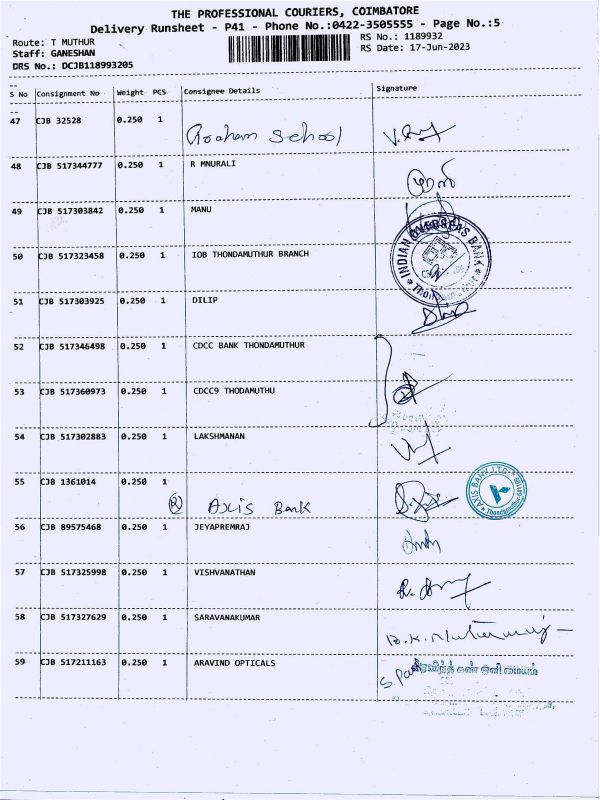 THE PROFESSIONAL COURIERS, COIMBATORE
Delivery Runsheet - P41 - Phone No.:0422-3505555 - Page No.:5
Route: T MUTHUR
RS No.: 1189932
Staff: GANESHAN
RS Date: 17-Jun-2023
DRS No.: DCJB118993205
S No Consignment No Weight PCS Consignee Details Signature
47 CJB 32528 0.250 1
School
48 CJB 517344777 0.250 1 R MNURALI
49 CJB 517303842 0.250 1 MANU
50 CJB 517323458 0.250 1 IOB THONDAMUTHUR BRANCH
INDIAN OVERSEAS BANK
51 CJB 517303925 0.250 1 DILIP
52 CJB 517346498 0.250 1 CDCC BANK THONDAMUTHUR
53 CJB 517360973 0.250 1 CDCC9 THODAMUTHU
54 CJB 517302883 0.250 1 LAKSHMANAN
55 CJB 1361014 0.250 1
Axis Bank
AXIS BANK LTD
56 CJB 89575468 0.250 1 JEYAPREMRAJ
57 CJB 517325998 0.250 1 VISHVANATHAN
58 CJB 517327629 0.250 1 SARAVANAKUMAR
59 CJB 517211163 0.250 1 ARAVIND OPTICALS
கண் ஒளி மையம்